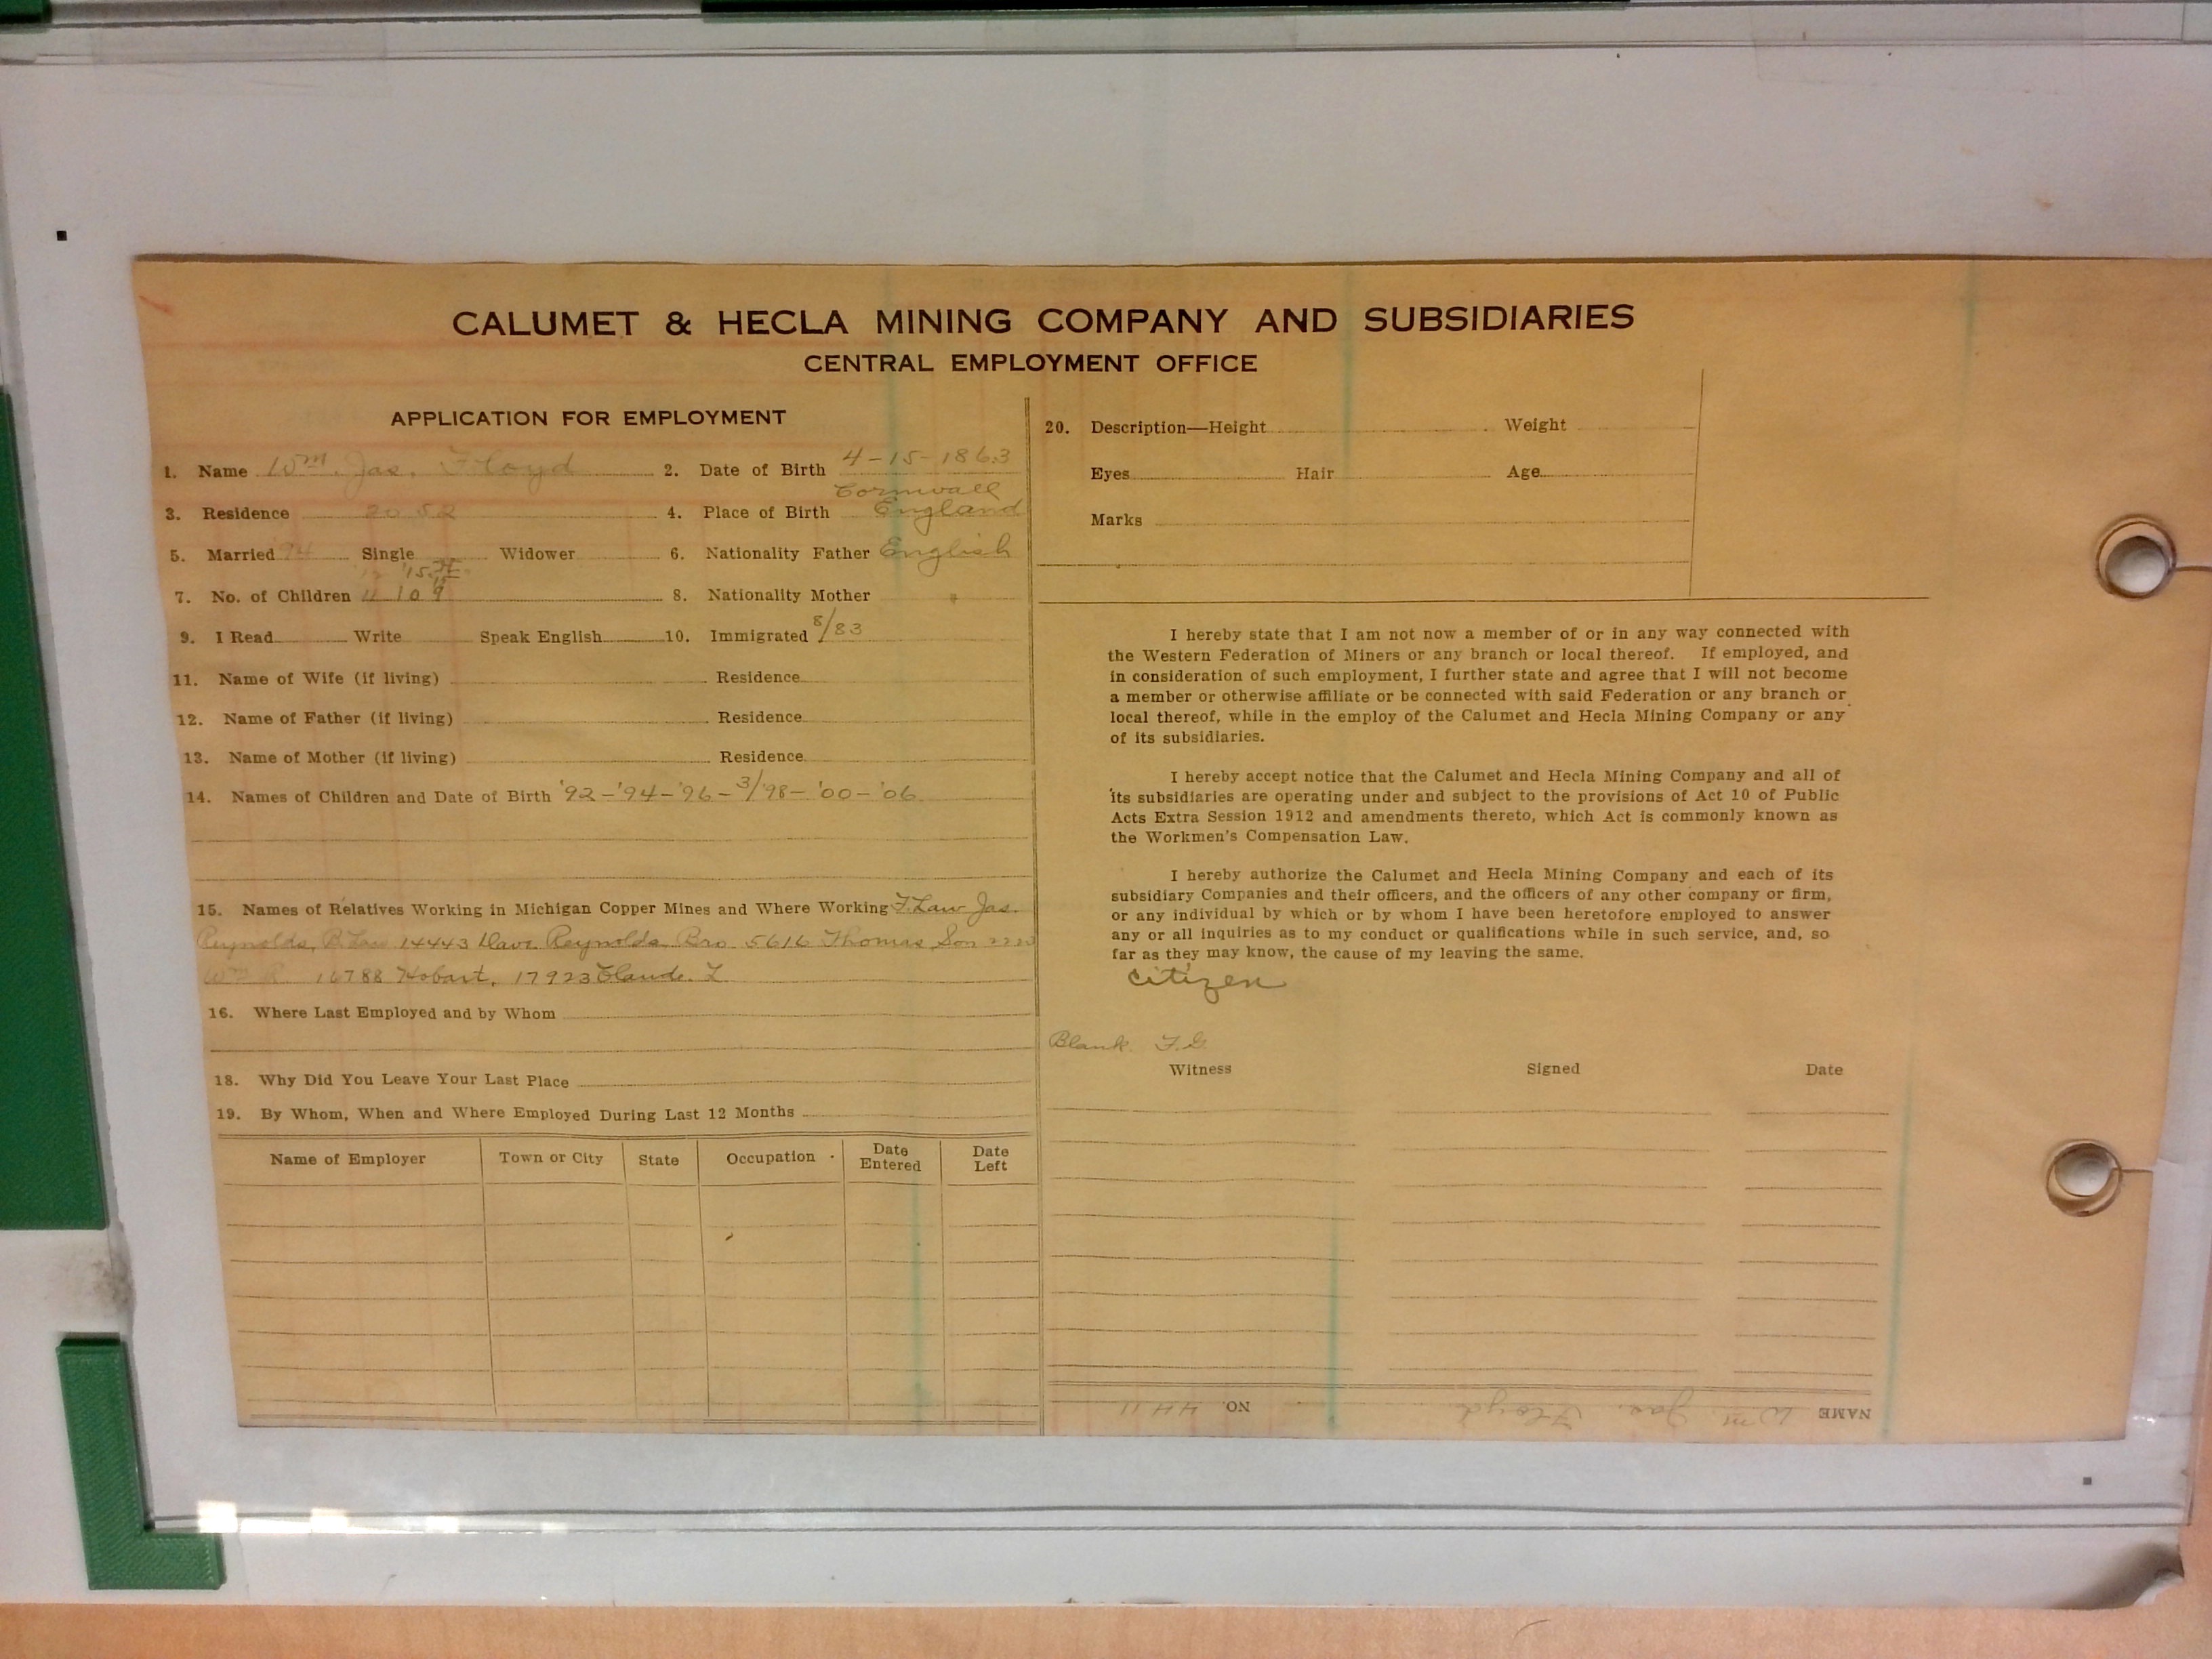 CALUMET & HECLA MINING COMPANY AND SUBSIDIARIES
CENTRAL EMPLOYMENT OFFICE
APPLICATION FOR EMPLOYMENT
1. Name Wm. Jas. Floyd 2. Date of Birth 4-15-1863
3. Residence 2052 4. Place of Birth Cornwall England
5. Married '94 Single Widower 6. Nationality Father English
7. No. of Children 11 10 9 8. Nationality Mother "
9. I Read Write Speak English 10. Immigrated 8/83
11. Name of Wife (if living) Residence
12. Name of Father (if living) Residence
13. Name of Mother (if living) Residence
14. Names of Children and Date of Birth '92-'94-'96-3/'98-'00-'06
15. Names of Relatives Working in Michigan Copper Mines and Where Working F. Law Jas.
Reynolds, B. Law 14443 Dave Reynolds Bro 5616 Thomas Son
Wm R 16788 Hobart, 17923 Claude. F
16. Where Last Employed and by Whom
18. Why Did You Leave Your Last Place
19. By Whom, When and Where Employed During Last 12 Months
Name of Employer Town or City State Occupation Date Entered Date Left
20. Description—Height Weight
Eyes Hair Age
Marks
I hereby state that I am not now a member of or in any way connected with
the Western Federation of Miners or any branch or local thereof. If employed, and
in consideration of such employment, I further state and agree that I will not become
a member or otherwise affiliate or be connected with said Federation or any branch or
local thereof, while in the employ of the Calumet and Hecla Mining Company or any
of its subsidiaries.
I hereby accept notice that the Calumet and Hecla Mining Company and all of
its subsidiaries are operating under and subject to the provisions of Act 10 of Public
Acts Extra Session 1912 and amendments thereto, which Act is commonly known as
the Workmen's Compensation Law.
I hereby authorize the Calumet and Hecla Mining Company and each of its
subsidiary Companies and their officers, and the officers of any other company or firm,
or any individual by which or by whom I have been heretofore employed to answer
any or all inquiries as to my conduct or qualifications while in such service, and, so
far as they may know, the cause of my leaving the same.
Citizen
Blank F.G.
Witness Signed Date
NAME Wm. Jas. Floyd NO. 4411